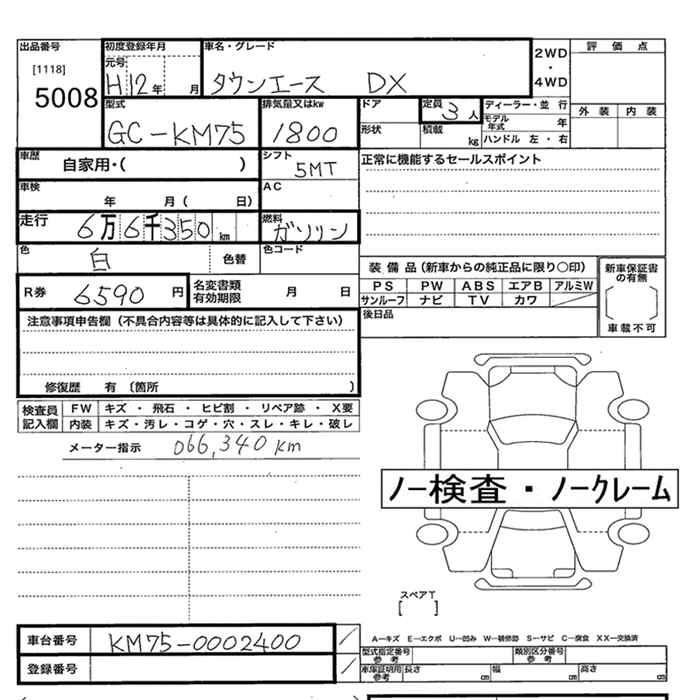 出品番号 初度登録年月 車名・グレード 2WD・4WD 評価点
[1118] 元号 H12年 月 タウンエース DX
5008 外装 内装
型式 排気量又はkw ドア 定員 3人 ディーラー・並行
GC-KM75 1800 形状 積載 kg モデル年式 年
ハンドル 左・右
車歴 自家用・( ) シフト 5MT 正常に機能するセールスポイント
車検 年 月( 日) AC
走行 6万6千350km 燃料 ガソリン
色 白 色替 色コード
装備品(新車からの純正品に限り○印) 新車保証書の有無
R券 6590円 名変書類有効期限 月 日 PS PW ABS エアB アルミW
サンルーフ ナビ TV カワ
注意事項申告欄(不具合内容等は具体的に記入して下さい) 後日品 車載不可
修復歴 有 〔箇所 〕
検査員記入欄 FW キズ・飛石・ヒビ割・リペア跡・X要
内装 キズ・汚レ・コゲ・穴・スレ・キレ・破レ
メーター指示 066,340km
ノー検査・ノークレーム
スペアT
[ ]
車台番号 KM75-0002400 A—キズ E—エクボ U—凹み W—補修跡 S—サビ C—腐食 XX—交換済
型式指定番号 参考 類別区分番号 参考
登録番号 車庫証明用 参考 長さ cm 幅 cm 高さ cm